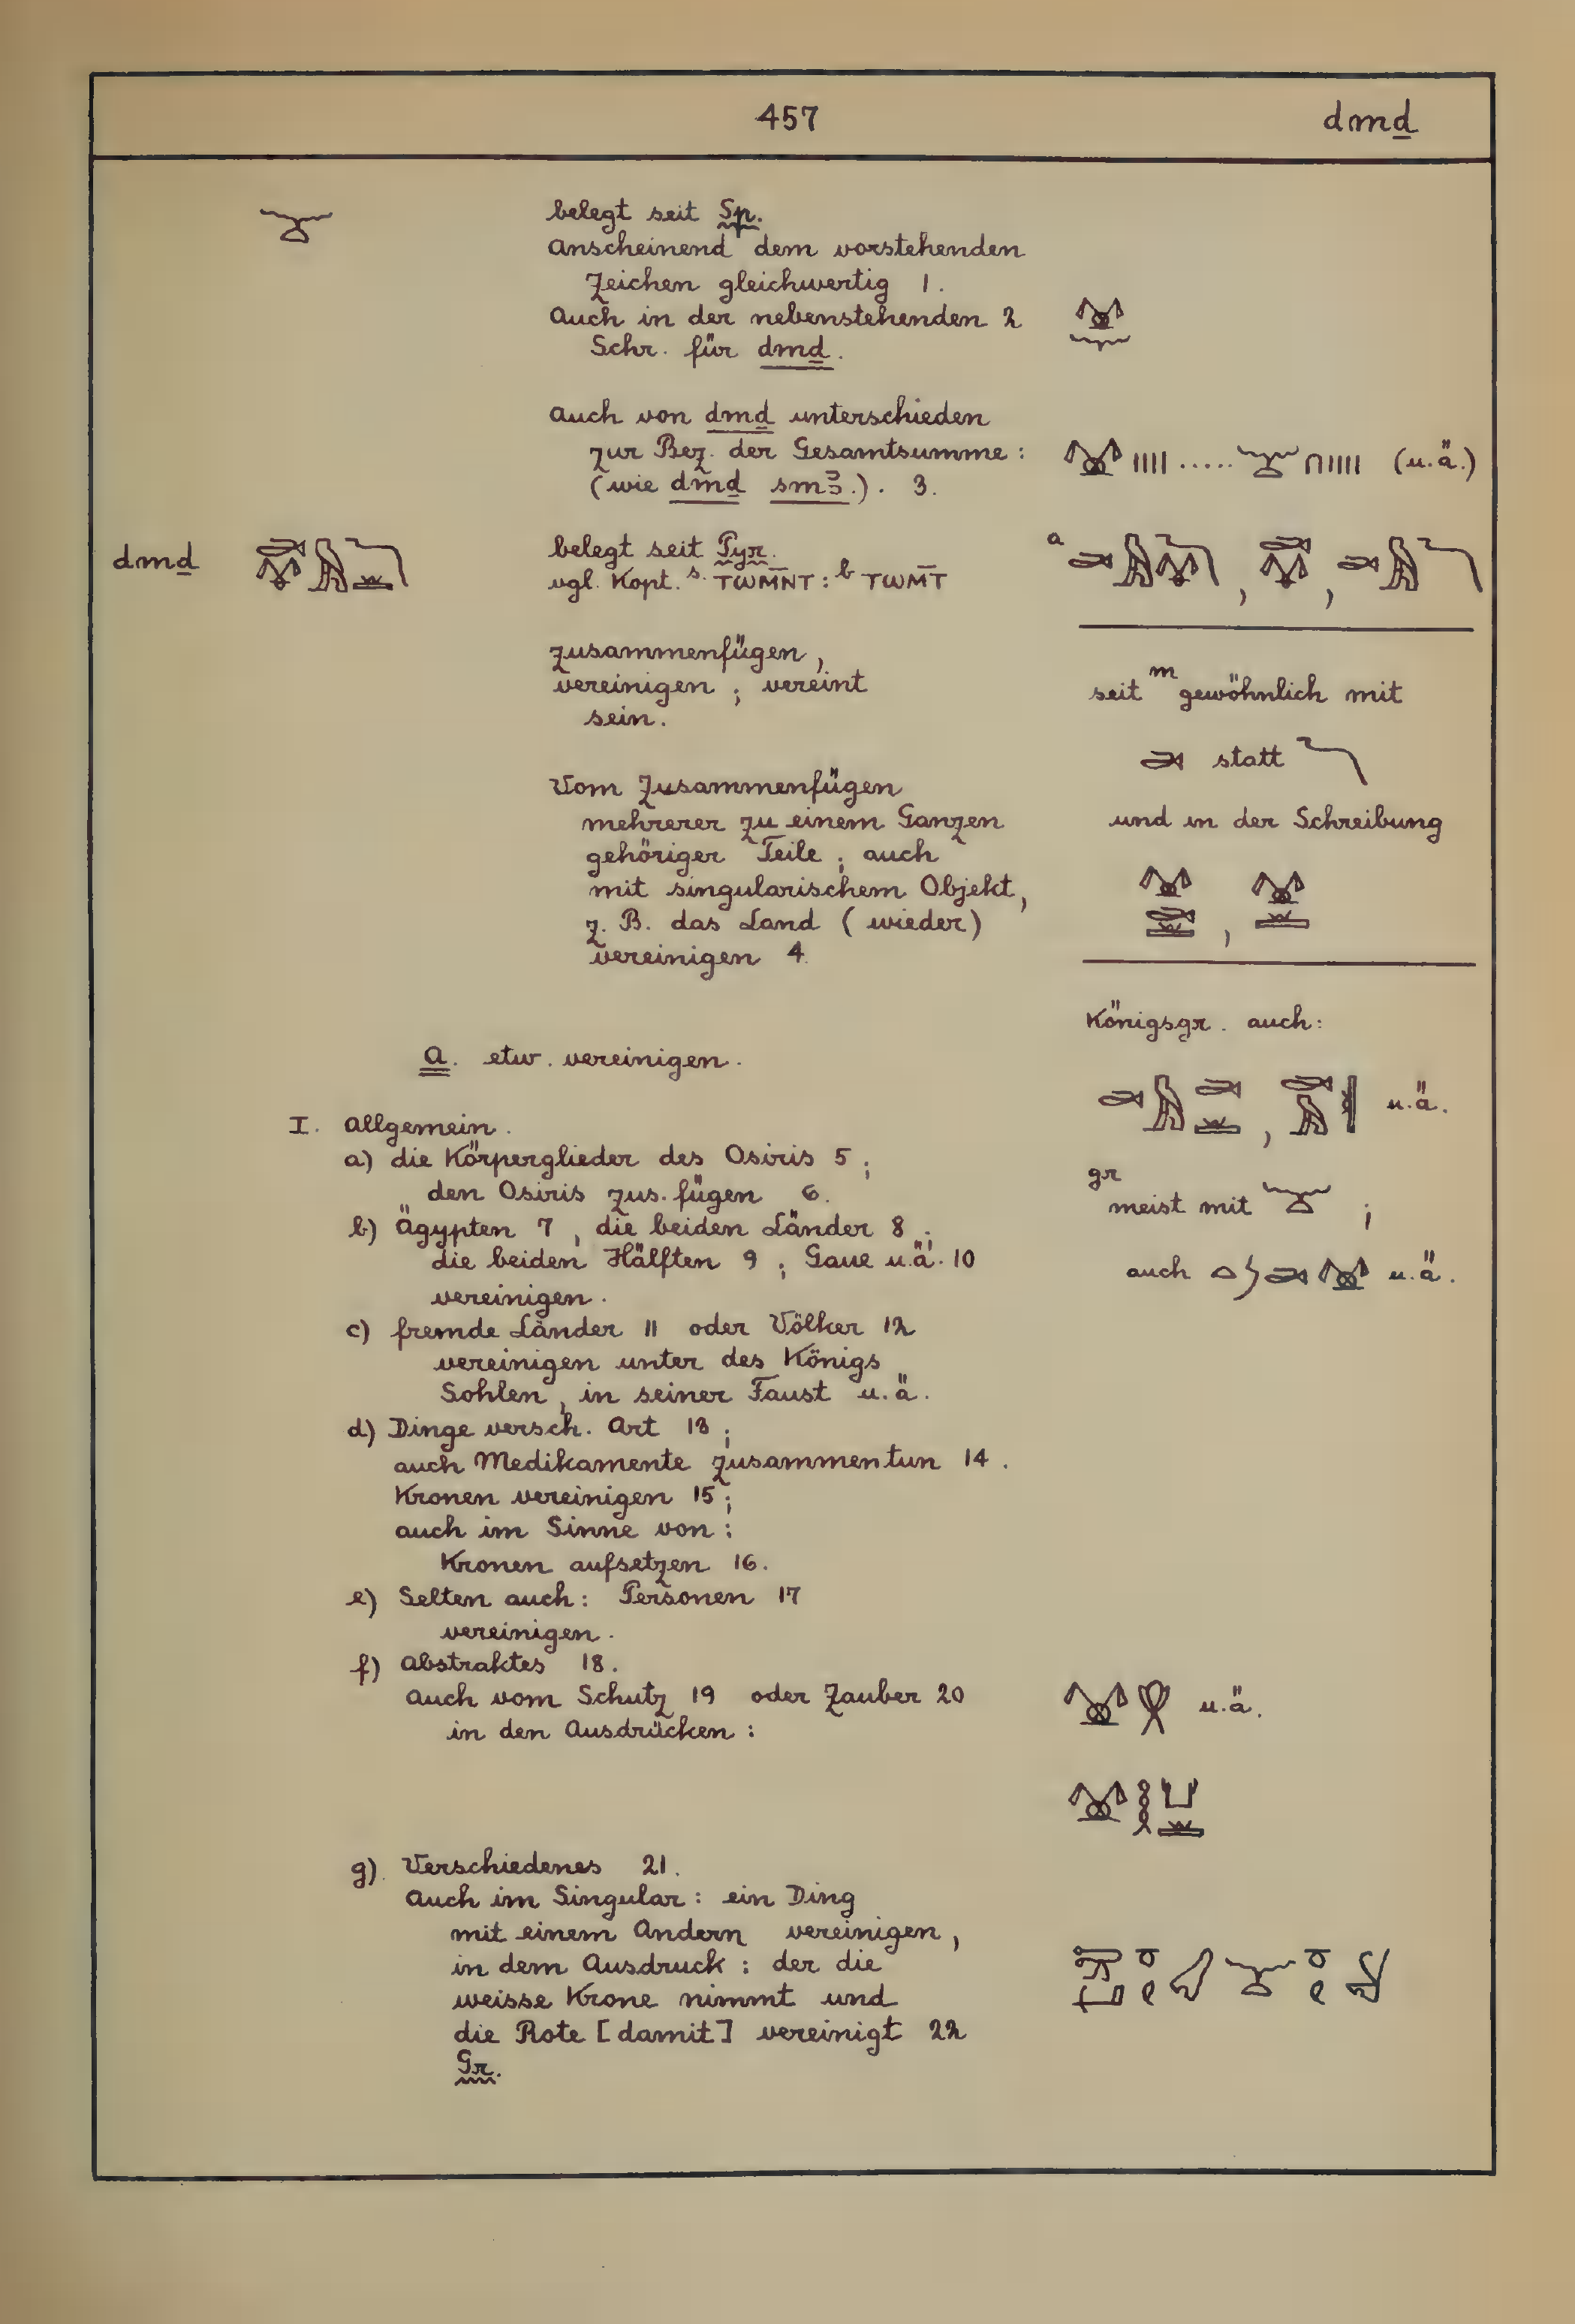 457
dmḏ
belegt seit Sp.
Anscheinend dem vorstehenden
Zeichen gleichwertig 1.
Auch in der nebenstehenden 2
Schr. für dmḏ.
Auch von dmḏ unterschieden
zur Bez. der Gesamtsumme:
(u.ä.)
(wie dmḏ smꜣ.). 3.
dmḏ
belegt seit Pyr.
vgl. Kopt. s. ⲧⲱⲙⲛ̄ⲧ : b ⲧⲱⲙ̄ⲧ
a
zusammenfügen,
vereinigen; vereint
sein.
Vom Zusammenfügen
mehrerer zu einem Ganzen
gehöriger Teile; auch
mit singularischem Objekt,
z. B. das Land (wieder)
vereinigen 4.
seit m gewöhnlich mit
statt
und in der Schreibung
Königsgr. auch:
u.ä.
gr meist mit ;
auch u.ä.
a. etw. vereinigen.
I. Allgemein.
a) die Körperglieder des Osiris 5;
den Osiris zus.fügen 6.
b) Ägypten 7, die beiden Länder 8;
die beiden Hälften 9; Gaue u.ä. 10
vereinigen.
c) fremde Länder 11 oder Völker 12
vereinigen unter des Königs
Sohlen, in seiner Faust u.ä.
d) Dinge versch. Art 13;
auch Medikamente zusammentun 14.
Kronen vereinigen 15;
auch im Sinne von:
Kronen aufsetzen 16.
e) Selten auch: Personen 17
vereinigen.
f) Abstraktes 18.
Auch vom Schutz 19 oder Zauber 20
in den Ausdrücken:
u.ä.
g) Verschiedenes 21.
Auch im Singular: ein Ding
mit einem Andern vereinigen,
in dem Ausdruck: der die
weisse Krone nimmt und
die Rote [damit] vereinigt 22
Gr.